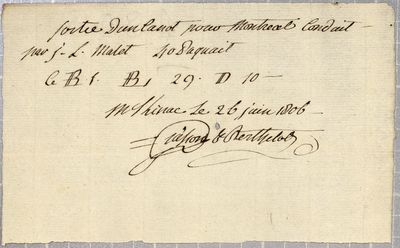 Sortie Dun Canot pour Montreal Conduit
par J. L. Malot 40 Paquait
Ce B 1. B 1 29. D 10
Mkinac Le 26 juin 1806
& Berthelot